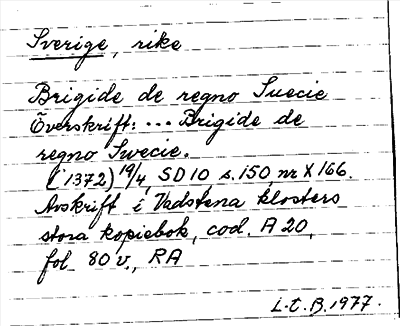 Sverige, rike
Brigide de regno Suecie
Överskrift: ... Brigide de
regno Swecie.
(1372) 19/4, SD10 s. 150, nr X166.
Avskrift i Vadstena klosters
stora kopiebok, cod. A 20,
fol 80 v., RA
L-t. B. 1977.